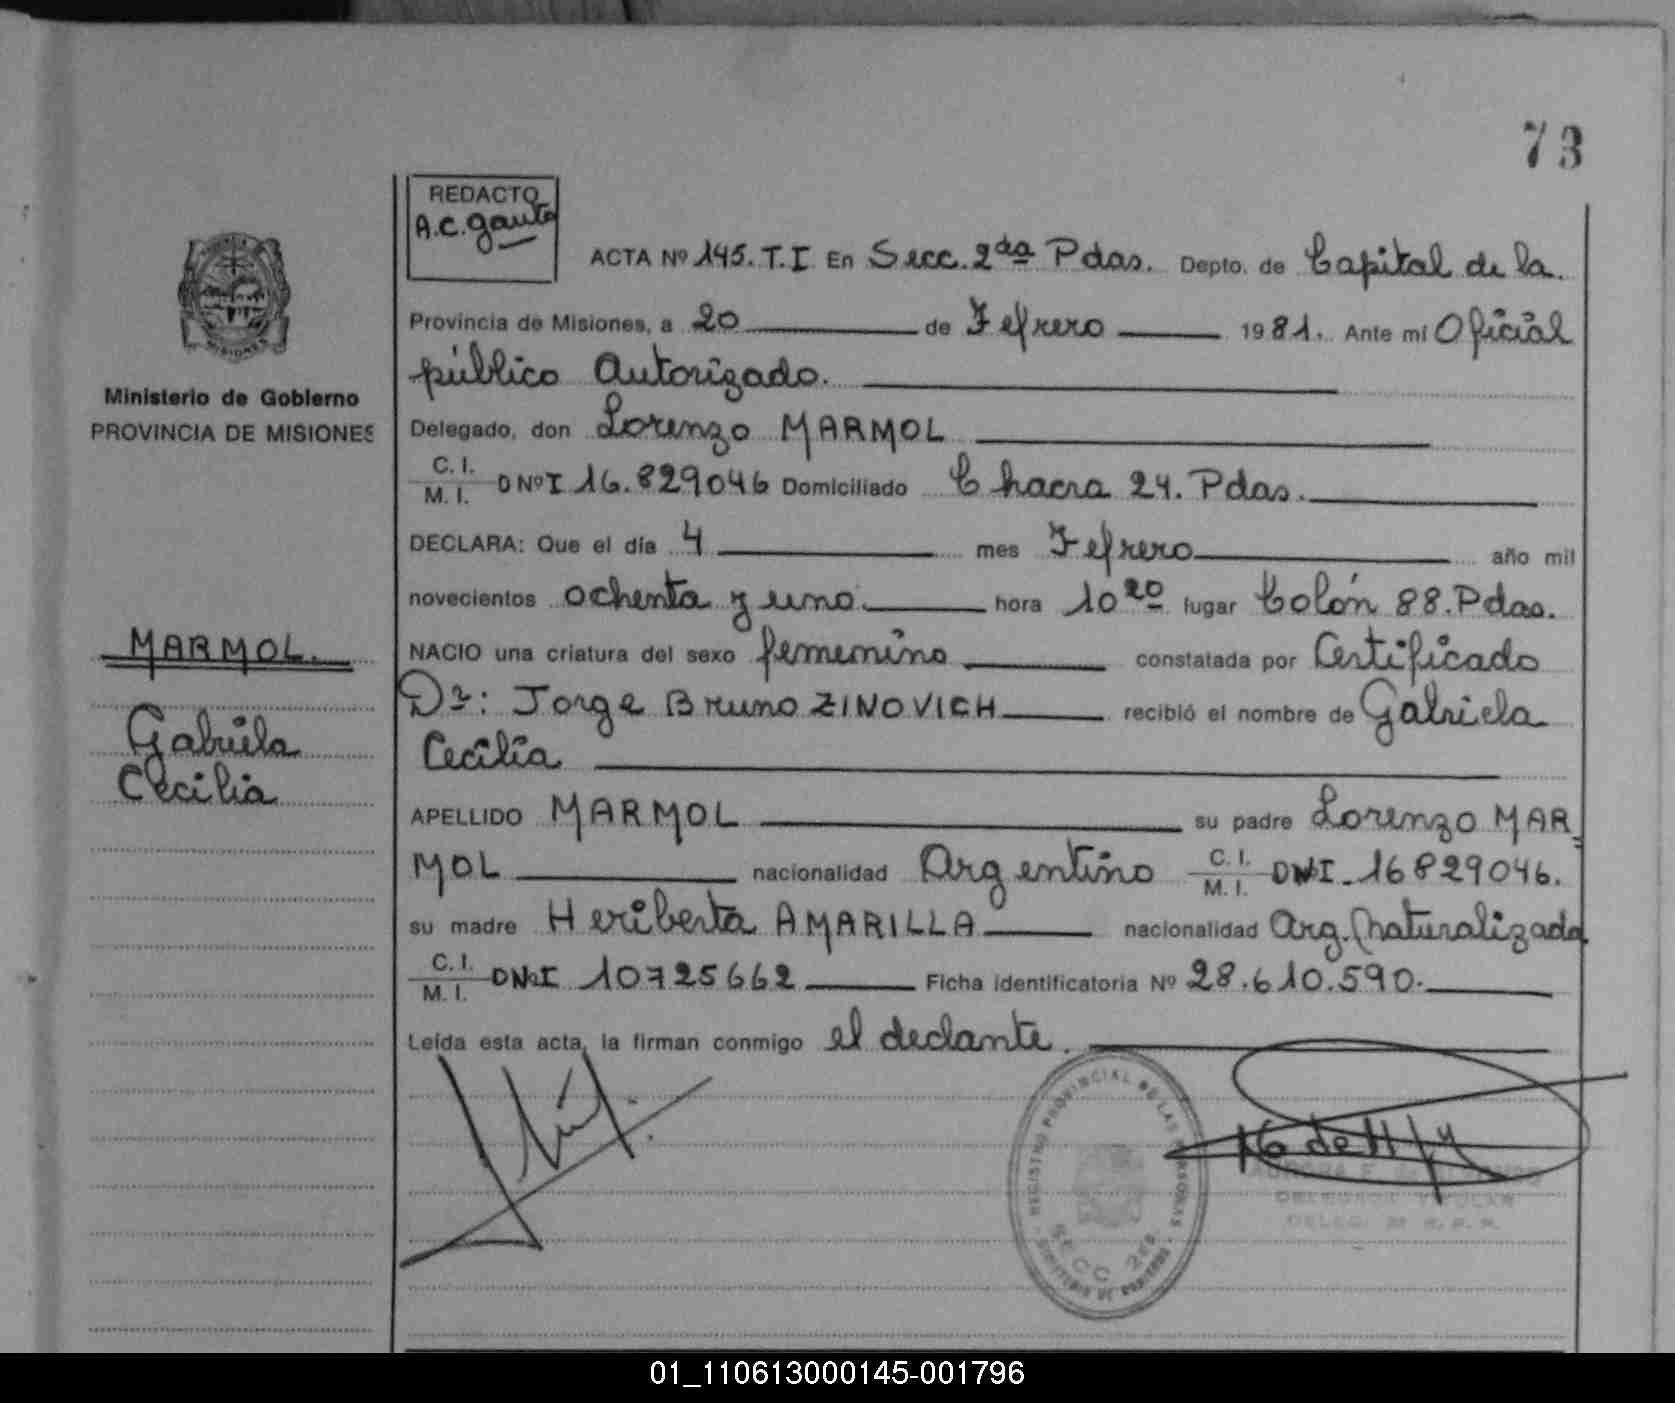 73
REDACTO
A.C. Gauto
ACTA Nº 145. T.I En Secc. 2da Pdas. Depto. de Capital de la
Provincia de Misiones, a 20 de Febrero 1981. Ante mi Oficial
público Autorizado.
Delegado, don Lorenzo MARMOL
C. I.
M. I. DNºI 16.829046 Domiciliado Chacra 24. Pdas.
DECLARA: Que el día 4 mes Febrero año mil
novecientos ochenta y uno hora 10 20 lugar Colón 88. Pdas.
NACIO una criatura del sexo femenino constatada por Certificado
Dr: Jorge Bruno ZINOVICH recibió el nombre de Gabriela
Cecilia
APELLIDO MARMOL su padre Lorenzo MAR
MOL nacionalidad Argentino C. I. M. I. DNI. 16829046.
su madre Heriberta AMARILLA nacionalidad Arg. (naturalizada
C. I.
M. I. DNI 10725662 Ficha identificatoria Nº 28.610.590.
Leída esta acta, la firman conmigo el declante.
Ministerio de Gobierno
PROVINCIA DE MISIONES
MARMOL.
Gabriela
Cecilia
REGISTRO PROVINCIAL DE LAS PERSONAS
SECC 2da
MINISTERIO DE GOBIERNO
DELEGADA TITULAR
01_110613000145-001796